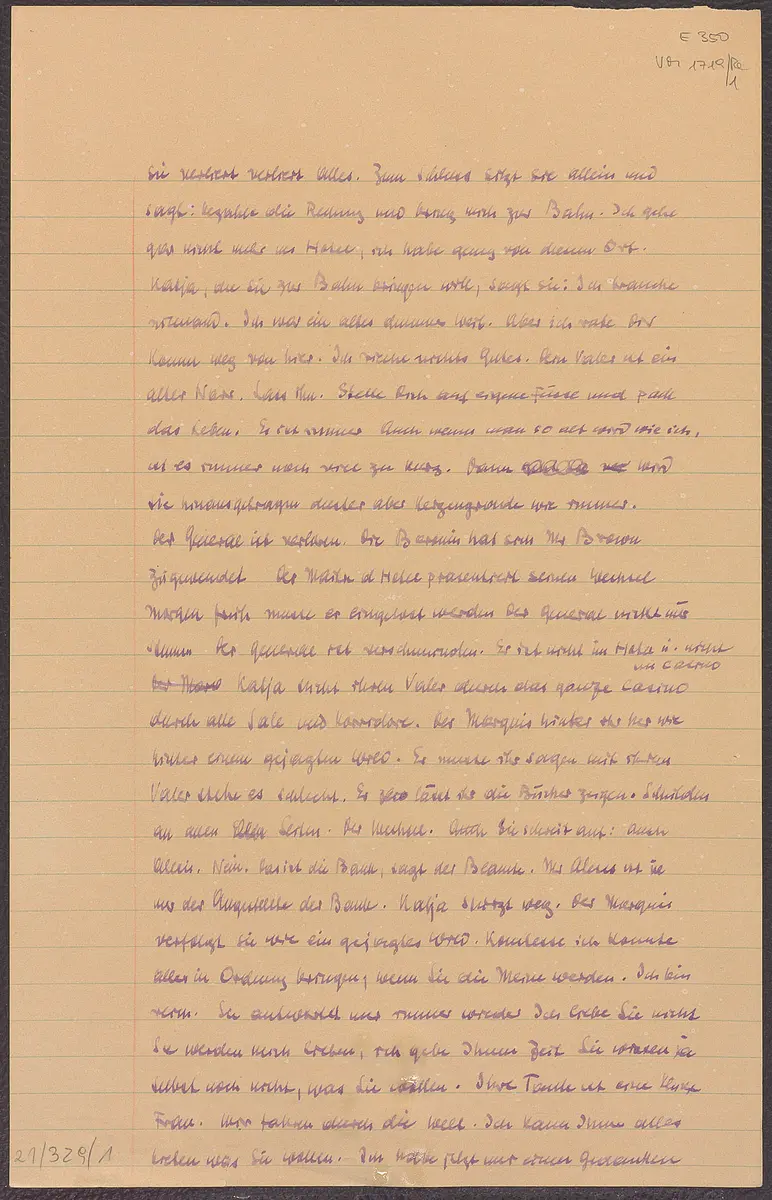 E 350
VOr 1719/Ra
/1
Sie verliert verliert Alles. Zum Schluss sitzt sie allein und
sagt: bezahle die Rechnung und bring mich zur Bahn. Ich gehe
gar nicht mehr ins Hotel, ich habe genug von diesem Ort.
Katja, die sie zur Bahn bringen will, sagt sie: Ich brauche
niemand. Ich war ein altes dummes Weib. Aber ich rate Dir
komm weg von hier. Ich rieche nichts Gutes. Dein Vater ist ein
alter Narr. Lass ihn. Stelle Dich auf eigene Füsse und pack
das Leben. Es ist immer Auch wenn man so alt wird wie ich,
ist es immer noch viel zu kurz. Dann wird
sie hinausgetragen duster aber kerzengrade wie immer.
Der General ist verloren. Die Baronin hat sich Mr Brown
zugewendet Der Maitre d Hotel präsentiert seinen Wechsel
Morgen früh müsse er eingelöst werden Der General nickt nur
stumm Der General ist verschwunden. Er ist nicht im Hotel u. nicht
im Casino
Der Katja sucht ihren Vater durch das ganze Casino
durch alle Säle und Korridore. Der Marquis hinter ihr her wie
hinter einem gejagten Wild. Er müsse ihr sagen mit ihrem
Vater stehe es schlecht. Er lässt ihr die Bücher zeigen. Schulden
an allen Seiten. Der Wechsel. Auch Sie schreit auf: auch
Alexis. Nein. Das ist die Bank, sagt der Beamte. Mr Alexis ist ja
nur der Angestellte der Bank. Katja stürzt weg. Der Marquis
verfolgt sie wie ein gejagtes Wild. Komtesse ich könnte
alles in Ordnung bringen, wenn Sie die Meine werden. Ich bin
reich. Sie antwortet nur immer wieder Ich liebe Sie nicht
Sie werden mich lieben, ich gebe Ihnen Zeit Sie wissen ja
selbst noch nicht, was Sie wollen. Ihre Tante ist eine kluge
Frau. Wir fahren durch die Welt. Ich kann Ihnen alles
bieten was Sie wollen. Ich habe jetzt nur einen Gedanken
21/329/1